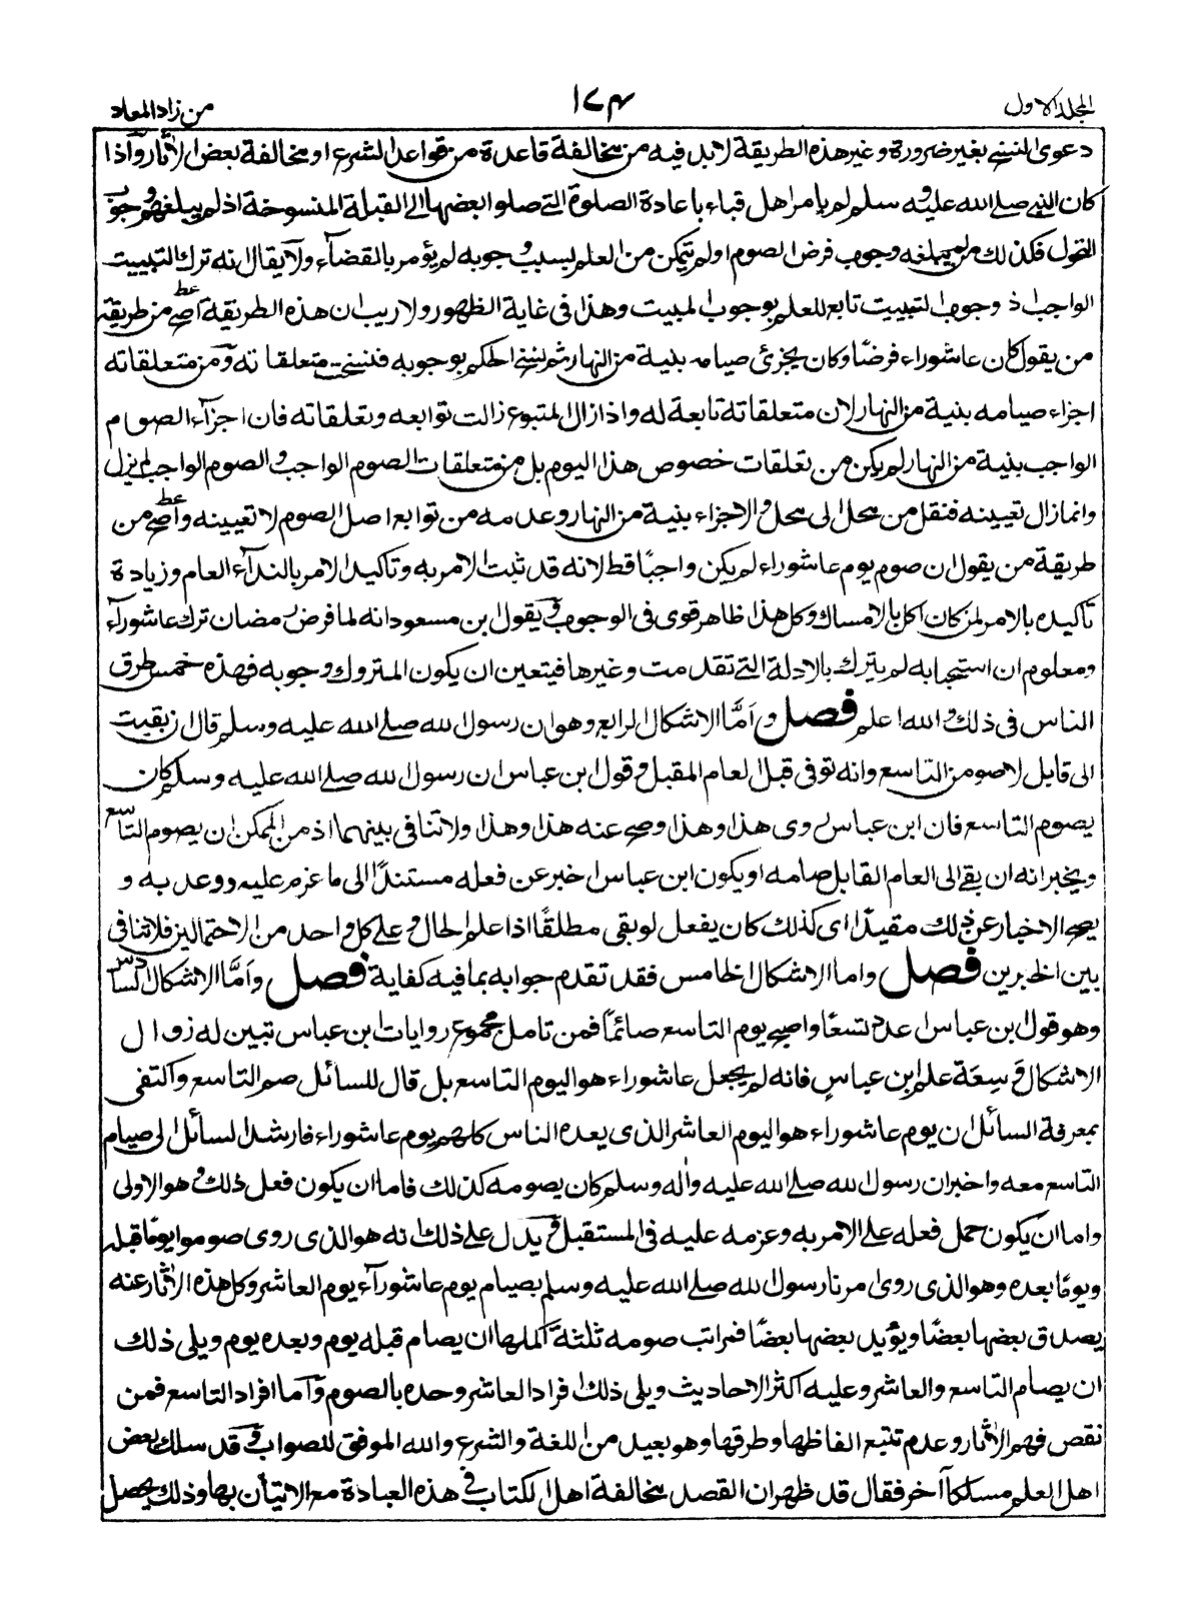 المجلد الاول
١٧٣
من زاد المعاد
دعوى النسخ بغير ضرورة وغير هذه الطريقة لابد فيه من مخالفة قاعدة من قواعد الشرع او مخالفة بعض الآثار واذا
كان النبي صلى الله عليه وسلم لم يامر اهل قباء باعادة الصلوة التي صلوا بعضها الى القبلة المنسوخة اذ لم يبلغهم وجوب
التحول فكذلك من لم يبلغه وجوب فرض الصوم او لم يتمكن من العلم بسبب وجوبه لم يؤمر بالقضاء ولا يقال انه ترك التبييت
الواجب اذ وجوب التبييت تابع للعلم بوجوب المبيت وهذا فى غاية الظهور ولا ريب ان هذه الطريقة اصح من طريقة
من يقول كان عاشوراء فرضًا وكان يجزئ صيامه بنية من النهار ثم نسخ الحكم بوجوبه فنسخت متعلقاته ومن متعلقاته
اجزاء صيامه بنية من النهار لان متعلقاته تابعة له واذا زال المتبوع زالت توابعه وتعلقاته فان اجزآء الصوم
الواجب بنية من النهار لم يكن من تعلقات خصوص هذا اليوم بل من متعلقات الصوم الواجب والصوم الواجب لم يزل
وانما زال تعيينه فنقل من محل الى محل والاجزاء بنية من النهار وعدمه من توابع اصل الصوم لا تعيينه واصح من
طريقة من يقول ان صوم يوم عاشوراء لم يكن واجبًا قط لانه قد ثبت الامر به وتاكيد الامر بالندآء العام وزيادة
تاكيده بالامر لمن كان اكل بالامساك وكل هذا ظاهر قوى فى الوجوب ويقول ابن مسعود انه لما فرض رمضان ترك عاشورآء
ومعلوم ان استحبابه لم يترك بالادلة التي تقدمت وغيرها فيتعين ان يكون المتروك وجوبه فهذه خمس طرق
الناس فى ذلك والله اعلم فصل و اَمَّا الاشكال الرابع وهو ان رسول الله صلى الله عليه وسلم قال ان بقيت
الى قابل لاصومن التاسع وانه توفى قبل العام المقبل وقول ابن عباس ان رسول الله صلى الله عليه وسلم كان
يصوم التاسع فان ابن عباس روى هذا وهذا وصح عنه هذا وهذا ولا تنافى بينهما اذ من الممكن ان يصوم التاسع
ويخبر انه ان بقى الى العام القابل صامه او يكون ابن عباس اخبر عن فعله مستندًا الى ما عزم عليه ووعد به و
يصح الاخبار عن ذلك مقيدًا اى كذلك كان يفعل لو بقى مطلقًا اذا علم الحال و على كل واحد من الاحتمالين فلا تنافى
بين الخبرين فصل واما الاشكال الخامس فقد تقدم جوابه بما فيه كفاية فصل واَمَّا الاشكال السادس
وهو قول ابن عباس اعدد تسعًا واصبح يوم التاسع صائمًا فمن تامل مجموع روايات ابن عباس تبين له زوال
الاشكال وَسِعَة علم ابن عباس فانه لم يجعل عاشوراء هو اليوم التاسع بل قال للسائل صم التاسع واكتفى
بمعرفة السائل ان يوم عاشوراء هو اليوم العاشر الذى يعده الناس كلهم يوم عاشوراء فارشد السائل الى صيام
التاسع معه واخبر ان رسول الله صلى الله عليه وآله وسلم كان يصومه كذلك فاما ان يكون فعل ذلك وهو الاولى
واما ان يكون حمل فعله على الامر به وعزمه عليه فى المستقبل ويدل على ذلك انه هو الذى روى صوموا يومًا قبله
ويومًا بعده وهو الذى روى امرنا رسول الله صلى الله عليه وسلم بصيام يوم عاشورآء يوم العاشر وكل هذه الآثار عنه
يصدق بعضها بعضًا ويؤيد بعضها بعضًا فمراتب صومه ثلثة اكملها ان يصام قبله يوم وبعده يوم ويلى ذلك
ان يصام التاسع والعاشر وعليه اكثر الاحاديث ويلى ذلك افراد العاشر وحده بالصوم وَاَما افراد التاسع فمن
نقص فهم الآثار وعدم تتبع الفاظها وطرقها وهو بعيد من اللغة والشرع والله الموفق للصواب وقد سلك بعض
اهل العلم مسلكا آخر فقال قد ظهر ان القصد مخالفة اهل الكتاب في هذه العبادة مع الاتيان بها وذلك يحصل